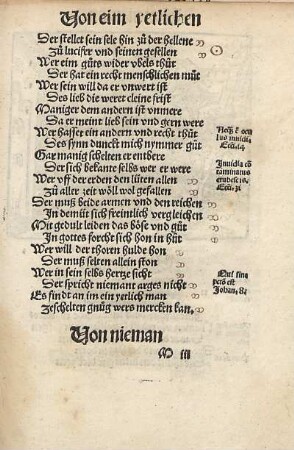 Von eim yetlichen
Der stellet sein sele hin zů der hellene
Zů lucifer vnd seinen gesellen
Wer eim gůts wider vbels thůt
Der hat ein recht menschlichen můt
Wer sein will da er vnwert ist
Des lieb die weret cleine frist
Maniger dem andern ist vnmere
Da er meint lieb sein vnd gern were
Wer hasset ein andern vnd recht thůt
Des synn dunckt mich nymmer gůt
Gar manig schelten er entbere
Der sich bekante selbs wer er were
Wer vff der erden den lüten allen
Zů aller zeit wöll wol gefallen
Der muß beide armen vnd den reichen
In dem it sich freintlich vergleichen
Mit gedult leiden das böse vnd gůt
In gottes forcht sich hon in hůt
Wer will der thoren hulde hon
Der muß selten allein ston
Wer in sein selbs hertze sicht
Der spricht niemant arges nicht
Es findt an im ein yetlich man
zeschelten gnůg wers mercken kan.
Inuidia
Qui sine
Johan. 8.
Von nieman
M iii